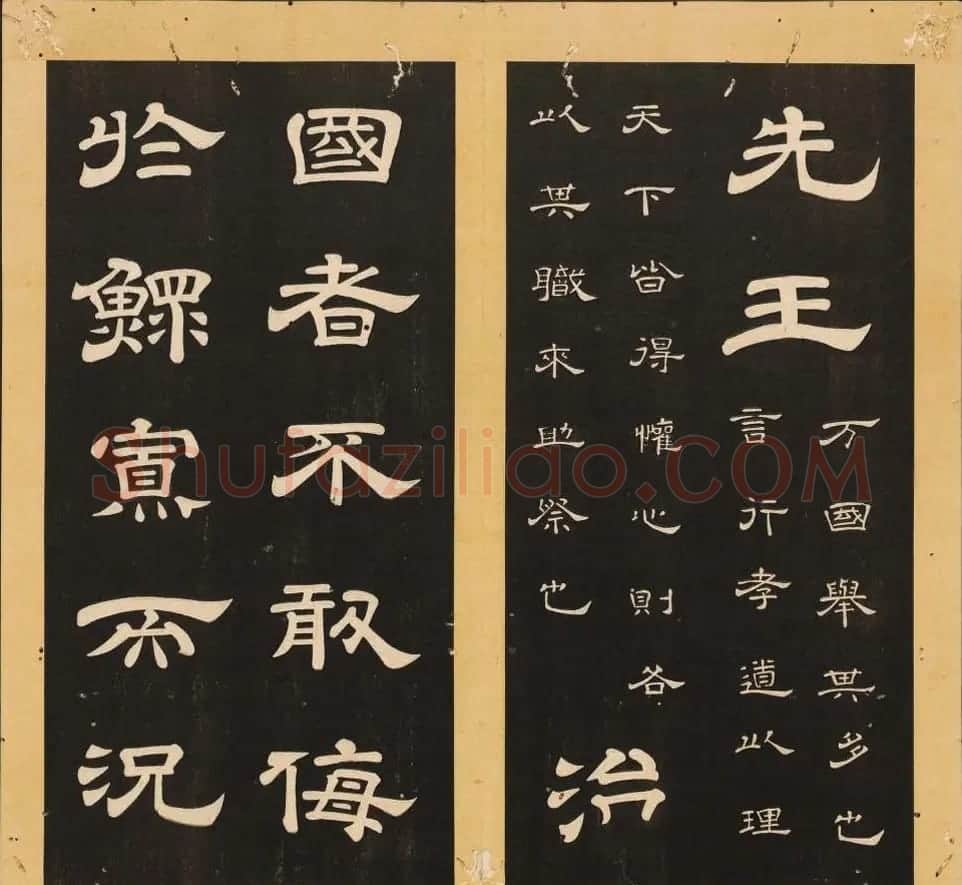 先王
万國舉其多也
言行孝道以理
天下皆得懽心則各
以其職來助祭也
治
國者不敢侮
於鰥寡而況
Shufaziliao.COM